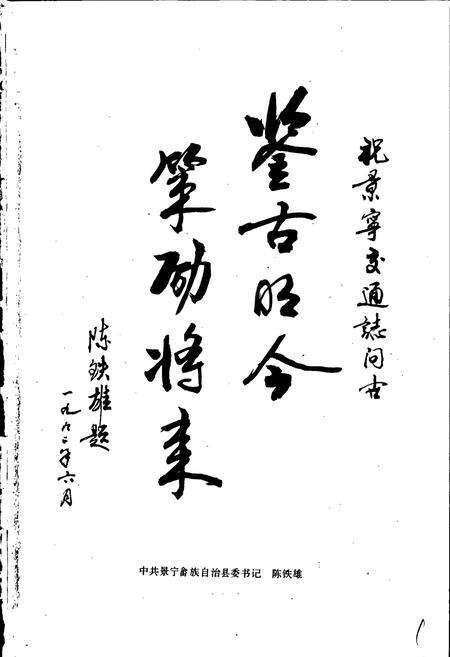 祝景寧交通誌问世
鉴古明今
策励将来
陈铁雄题
一九九二年六月
中共景宁畲族自治县委书记 陈铁雄